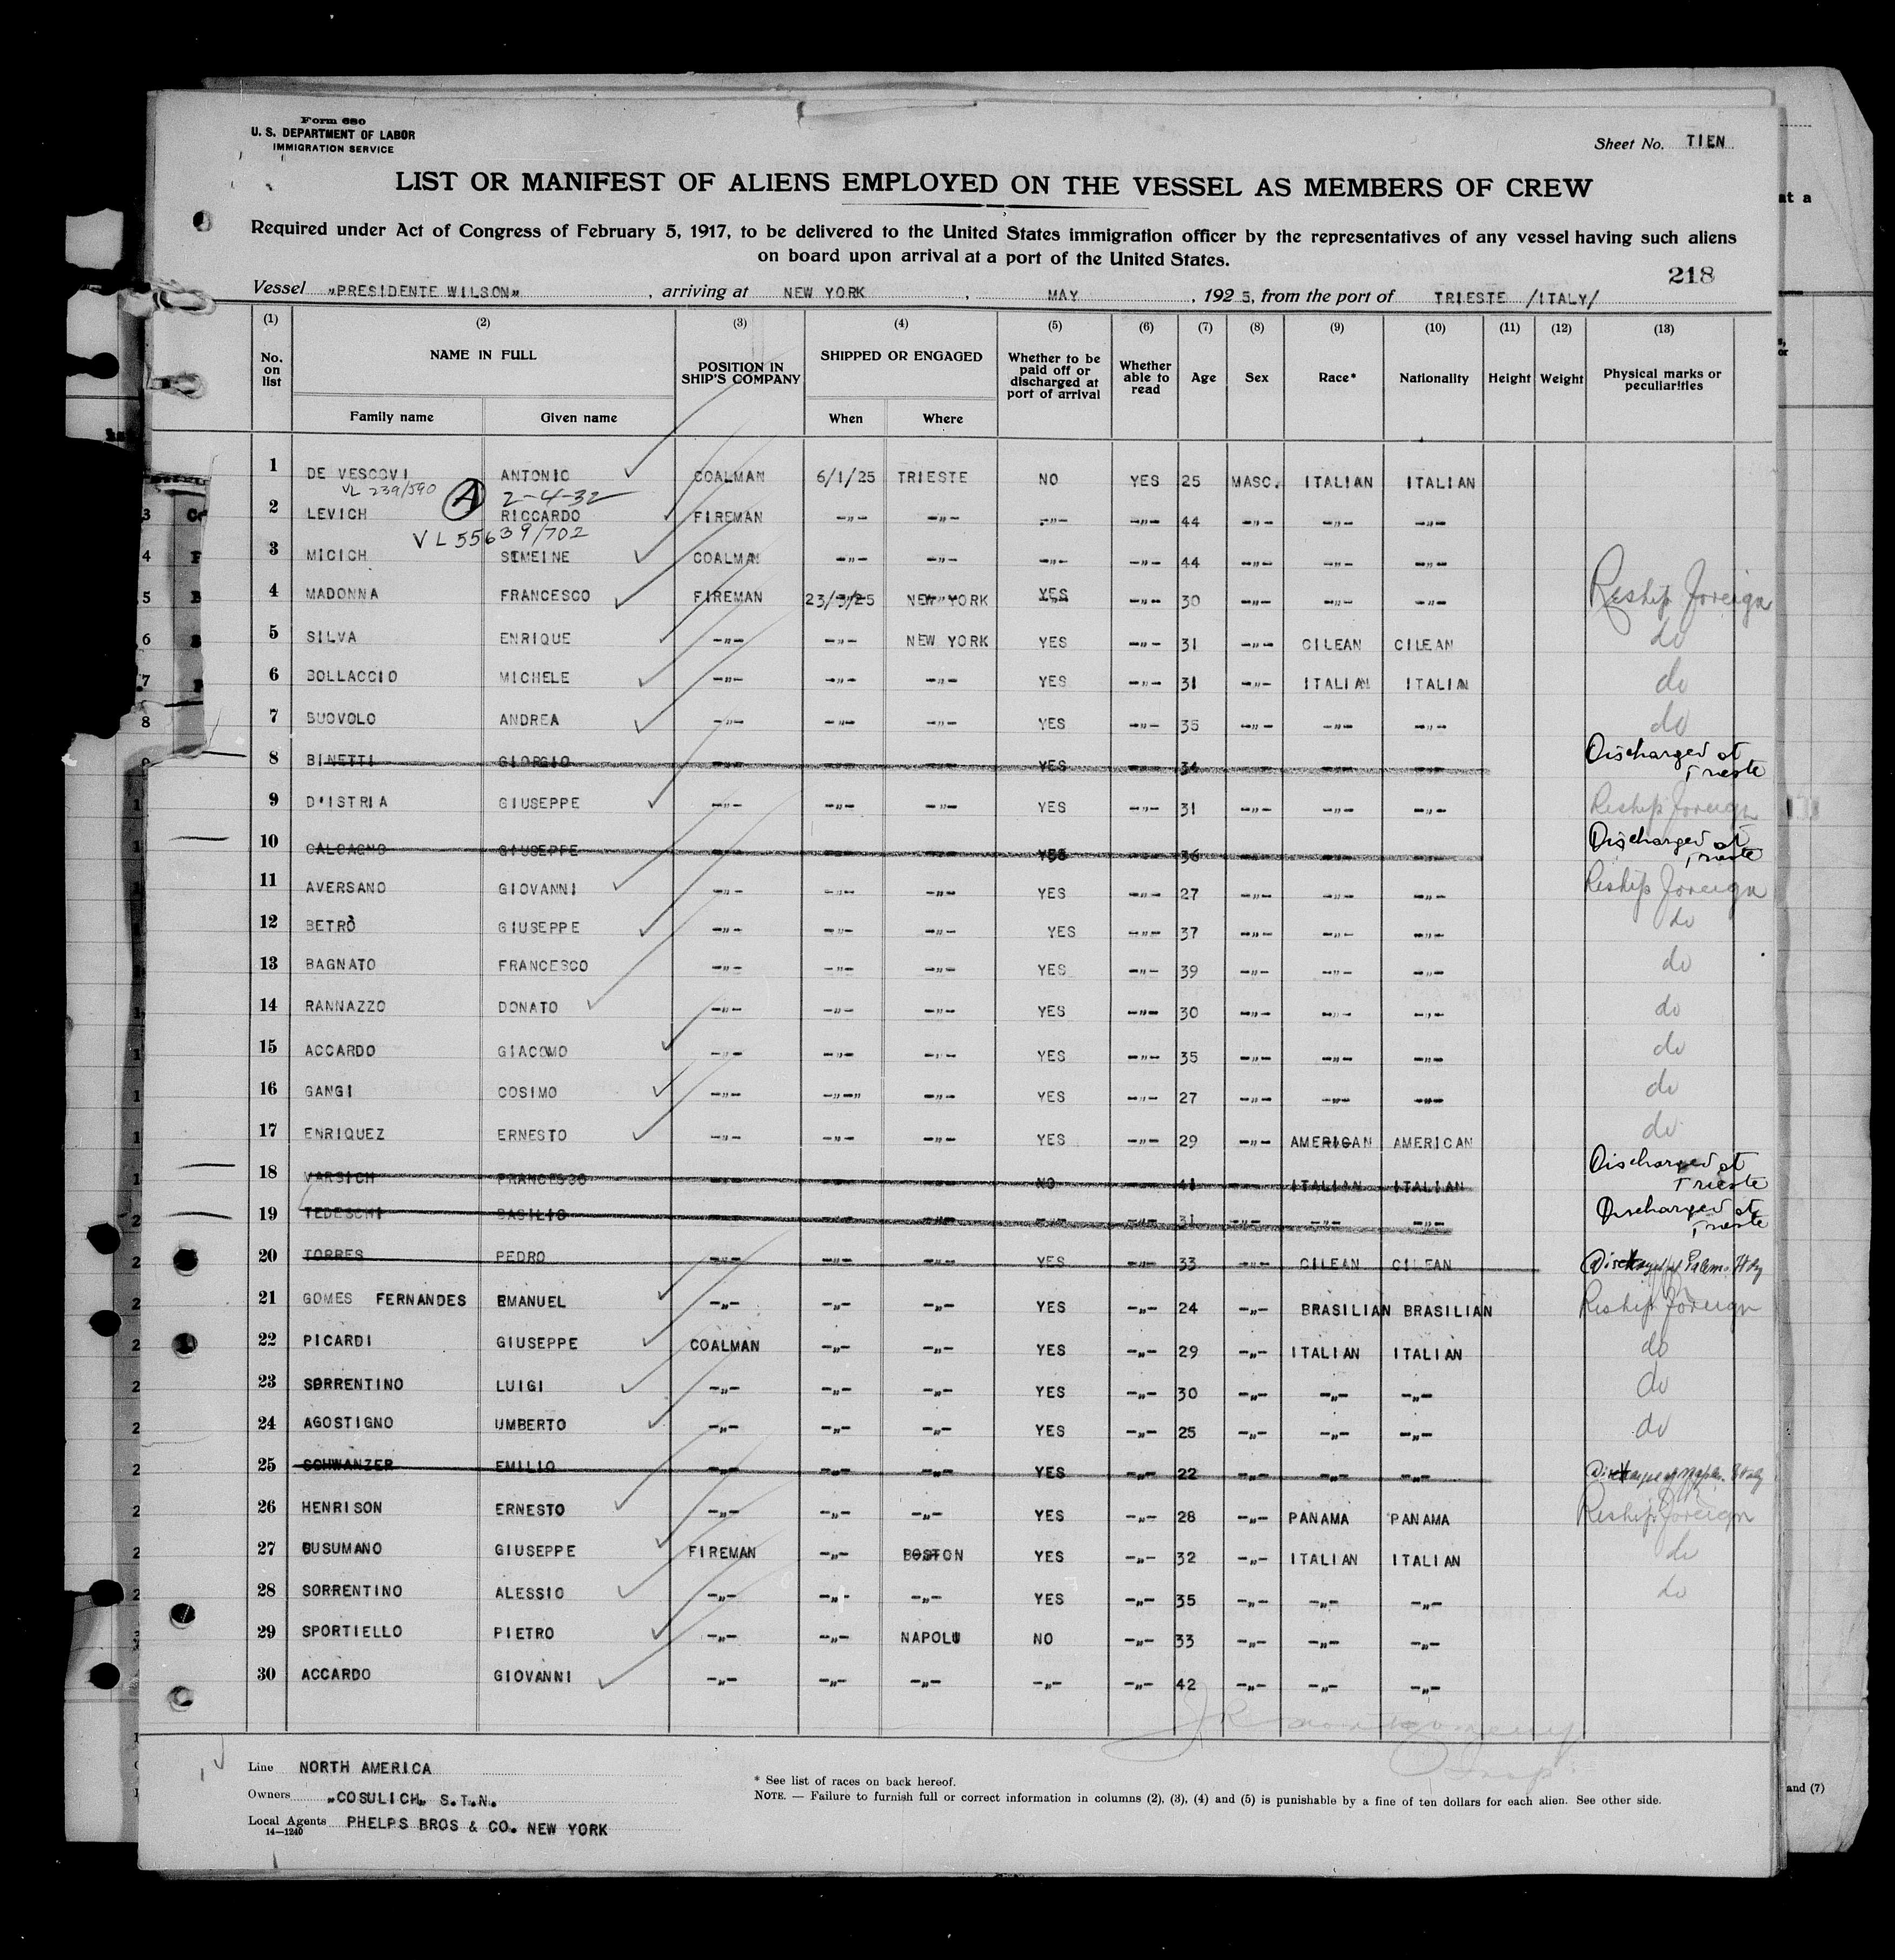 Form 680
U. S. DEPARTMENT OF LABOR
IMMIGRATION SERVICE
Sheet No. TIEN
LIST OR MANIFEST OF ALIENS EMPLOYED ON THE VESSEL AS MEMBERS OF CREW
Required under Act of Congress of February 5, 1917, to be delivered to the United States immigration officer by the representatives of any vessel having such aliens
on board upon arrival at a port of the United States.
218
Vessel „PRESIDENTE WILSON„ , arriving at NEW YORK , MAY , 1925, from the port of TRIESTE /ITALY/
(1) (2) (3) (4) (5) (6) (7) (8) (9) (10) (11) (12) (13)
No. on list NAME IN FULL Family name Given name POSITION IN SHIP'S COMPANY SHIPPED OR ENGAGED When Where Whether to be paid off or discharged at port of arrival Whether able to read Age Sex Race* Nationality Height Weight Physical marks or peculiarities
1 DE VESCOVI ANTONIO COALMAN 6/1/25 TRIESTE NO YES 25 MASC. ITALIAN ITALIAN
VL 239/590 A 2-4-32
2 LEVICH RICCARDO FIREMAN -„- -„- -„- -„- 44 -„- -„- -„-
VL 55639/702
3 MICICH SIMEINE COALMAN -„- -„- -„- -„- 44 -„- -„- -„-
4 MADONNA FRANCESCO FIREMAN 23/3/25 NEW YORK YES -„- 30 -„- -„- -„- Reship foreign
5 SILVA ENRIQUE -„- -„- NEW YORK YES -„- 31 -„- CILEAN CILEAN do
6 BOLLACCIO MICHELE -„- -„- -„- YES -„- 31 -„- ITALIAN ITALIAN do
7 BUOVOLO ANDREA -„- -„- -„- YES -„- 35 -„- -„- -„- do
8 BINETTI GIORGIO -„- -„- -„- YES -„- 34 -„- -„- -„- Discharged at Trieste
9 D'ISTRIA GIUSEPPE -„- -„- -„- YES -„- 31 -„- -„- -„- Reship foreign
10 CALCAGNO GIUSEPPE -„- -„- -„- YES -„- 36 -„- -„- -„- Discharged at Trieste
11 AVERSANO GIOVANNI -„- -„- -„- YES -„- 27 -„- -„- -„- Reship foreign
12 BETRÒ GIUSEPPE -„- -„- -„- YES -„- 37 -„- -„- -„- do
13 BAGNATO FRANCESCO -„- -„- -„- YES -„- 39 -„- -„- -„- do
14 RANNAZZO DONATO -„- -„- -„- YES -„- 30 -„- -„- -„- do
15 ACCARDO GIACOMO -„- -„- -„- YES -„- 35 -„- -„- -„- do
16 GANGI COSIMO -„- -„-„ -„- YES -„- 27 -„- -„- -„- do
17 ENRIQUEZ ERNESTO -„- -„- -„- YES -„- 29 -„- AMERICAN AMERICAN do
18 VARSICH FRANCESCO -„- -„- -„- NO -„- 41 -„- ITALIAN ITALIAN Discharged at Trieste
19 TEDESCHI BASILIO -„- -„- -„- -„- -„- 31 -„- -„- -„- Discharged at Trieste
20 TORRES PEDRO -„- -„- -„- YES -„- 33 -„- CILEAN CILEAN
21 GOMES FERNANDES EMANUEL -„- -„- -„- YES -„- 24 -„- BRASILIAN BRASILIAN Reship foreign
22 PICARDI GIUSEPPE COALMAN -„- -„- YES -„- 29 -„- ITALIAN ITALIAN do
23 SORRENTINO LUIGI -„- -„- -„- YES -„- 30 -„- -„- -„- do
24 AGOSTIGNO UMBERTO -„- -„- -„- YES -„- 25 -„- -„- -„- do
25 SCHWANZER EMILIO -„- -„- -„- YES -„- 22 -„- -„- -„-
26 HENRISON ERNESTO -„- -„- -„- YES -„- 28 -„- PANAMA PANAMA Reship foreign
27 BUSUMANO GIUSEPPE FIREMAN -„- BOSTON YES -„- 32 -„- ITALIAN ITALIAN do
28 SORRENTINO ALESSIO -„- -„- -„- YES -„- 35 -„- -„- -„- do
29 SPORTIELLO PIETRO -„- -„- NAPOLI NO -„- 33 -„- -„- -„-
30 ACCARDO GIOVANNI -„- -„- -„- -„- -„- 42 -„- -„- -„-
Line NORTH AMERICA
Owners „COSULICH„ S.T.N.
Local Agents PHELPS BROS & CO. NEW YORK
14—1240
* See list of races on back hereof.
NOTE. — Failure to furnish full or correct information in columns (2), (3), (4) and (5) is punishable by a fine of ten dollars for each alien. See other side.
and (7)